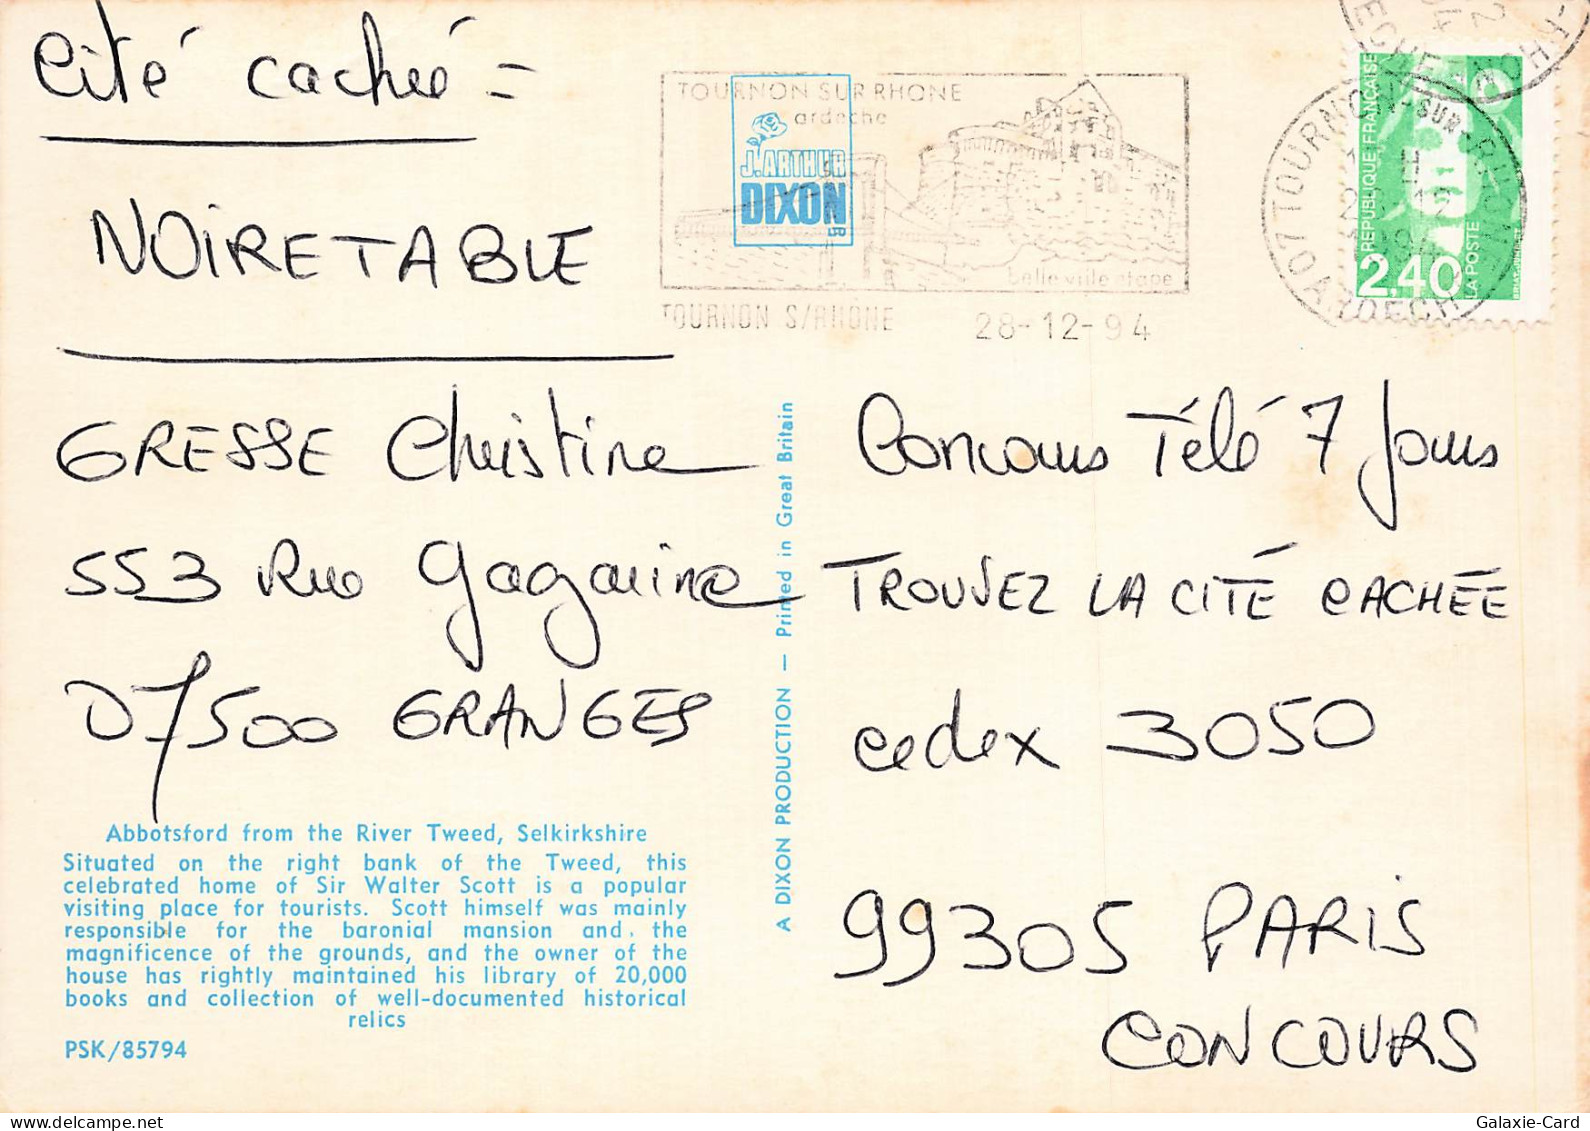 Cité caché =
NOIRETABLE
TOURNON SUR RHONE
ardeche
J. ARTHUR
DIXON
belle ville etape
TOURNON S/RHÔNE 28-12-94
07 TOURNON-SUR-RHONE
ARDECHE
REPUBLIQUE FRANÇAISE
2,40
LA POSTE
GRESSE Christine
553 Rue gagarine
07500 GRANGES
Abbotsford from the River Tweed, Selkirkshire
Situated on the right bank of the Tweed, this
celebrated home of Sir Walter Scott is a popular
visiting place for tourists. Scott himself was mainly
responsible for the baronial mansion and the
magnificence of the grounds, and the owner of the
house has rightly maintained his library of 20,000
books and collection of well-documented historical
relics
PSK/85794
A DIXON PRODUCTION — Printed in Great Britain
Concours Télé 7 Jours
TROUVEZ LA CITÉ CACHÉE
cedex 3050
99305 PARIS
CONCOURS
Galaxie-Card